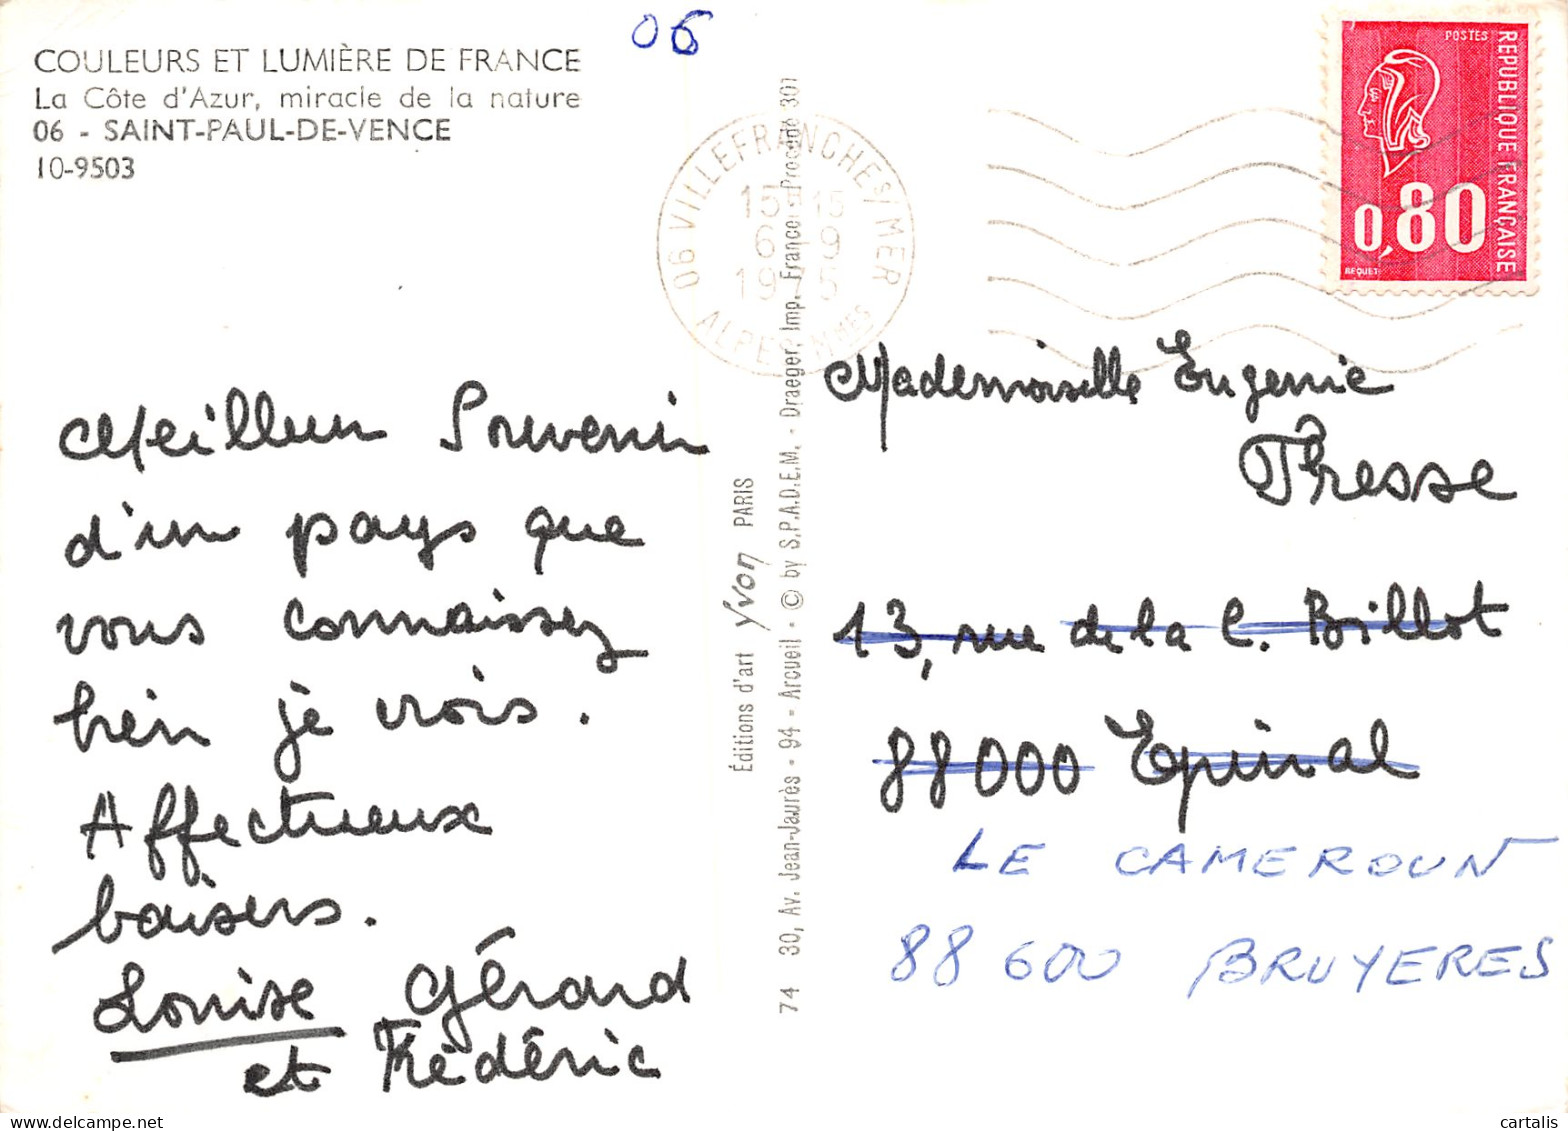 COULEURS ET LUMIÈRE DE FRANCE
La Côte d'Azur, miracle de la nature
06 - SAINT-PAUL-DE-VENCE
10-9503
06
06 VILLEFRANCHE S/MER
15 H 15
6 - 9
1975
ALPES MMES
POSTES
REPUBLIQUE FRANÇAISE
0,80
BEQUET
Meilleur Souvenir
d'un pays que
vous connaissez
bien je crois.
Affectueux
baisers.
Louise Gérard
et Frédéric
Éditions d'art Yvon PARIS
74 30, Av. Jean-Jaurès - 94 - Arcueil - © by S.P.A.D.E.M. - Draeger, Imp. France - Procédé 301
Mademoiselle Eugenie
Thresse
13, rue de la C. Billot
88000 Epinal
LE CAMEROUN
88 600 BRUYERES
cartalis